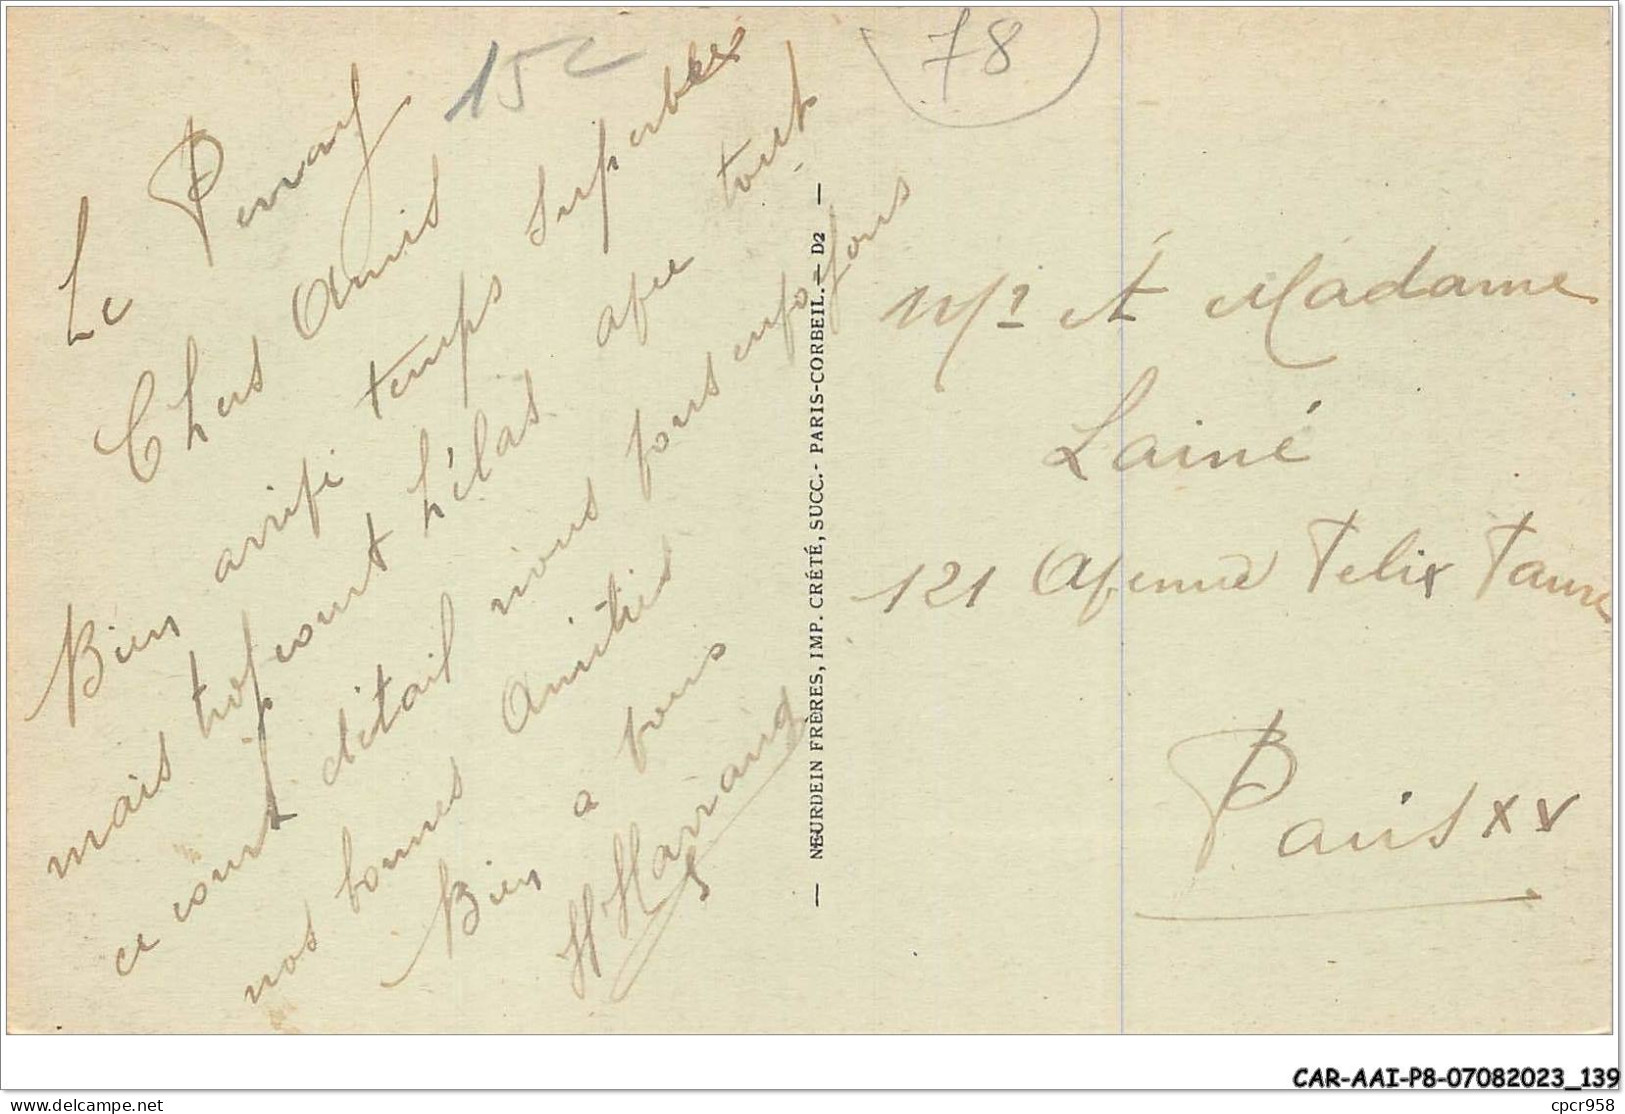 15c
78
Le Perray
Chers Amis
Bien arrivé temps superbes
mais trop court hélas avec tout
ce court détail nous vous envoyons
nos bonnes Amitiés
Bien a vous
H Harrang
— NEURDEIN FRÈRES, IMP. CRÉTÉ, SUCC.- PARIS-CORBEIL.— D2 —
Mr et Madame
Lainé
121 Avenue Felix Faure
Paris XV
CAR-AAI-P8-07082023_139
delcampe.net
cpcr958